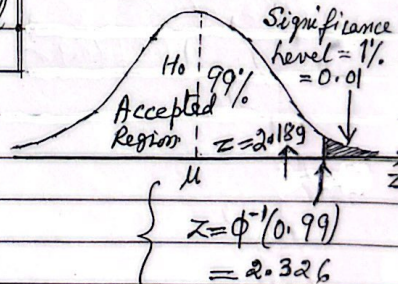 Significance
Level = 1%
= 0.01
H₀ 99%
Accepted
Region
z = 2.189
μ
z
Z = ϕ⁻¹(0.99)
= 2.326